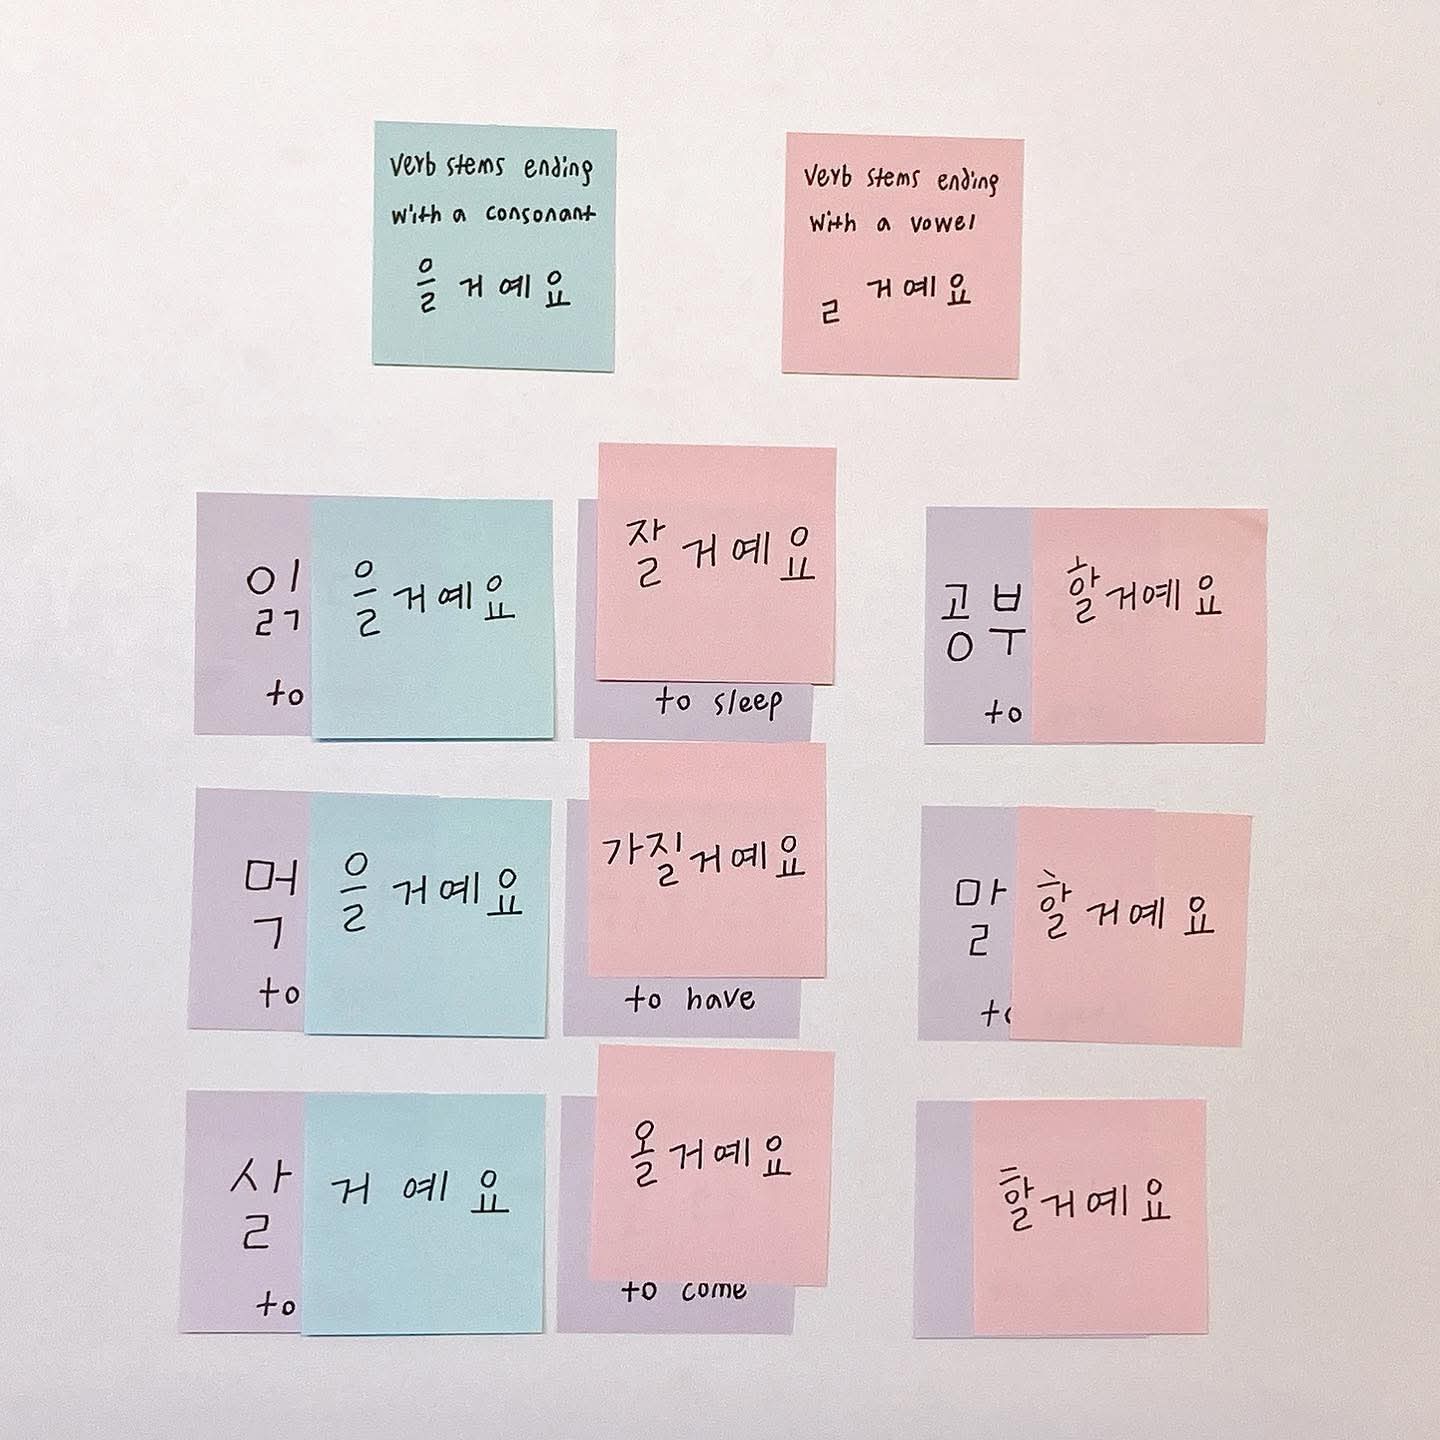 verb stems ending
with a consonant
을 거예요
verb stems ending
with a vowel
ㄹ 거예요
읽을거예요
to
잘거예요
to sleep
공부할거예요
to
먹을 거예요
to
가질거예요
to have
말할거예요
살거예요
to
올거예요
to come
할거예요